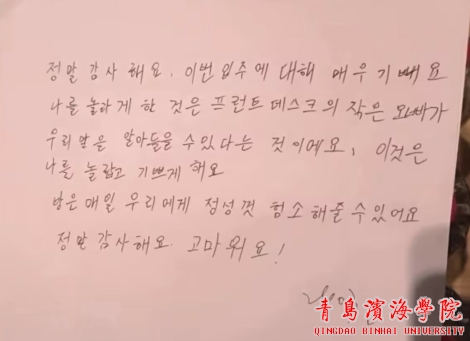 정말 감사 해요. 이번 입주에 대해 매우 기빼요
나를 놀라게 한 것은 프런트데스크의 작은 오빠가
우리 말을 알아들을 수 있다는 것이에요, 이것은
나를 놀랍고 기쁘게 해요
방은 매일 우리에게 정성껏 청소 해줄 수 있어요
정말 감사해요. 고마워요!
青島濱海學院
QINGDAO BINHAI UNIVERSITY